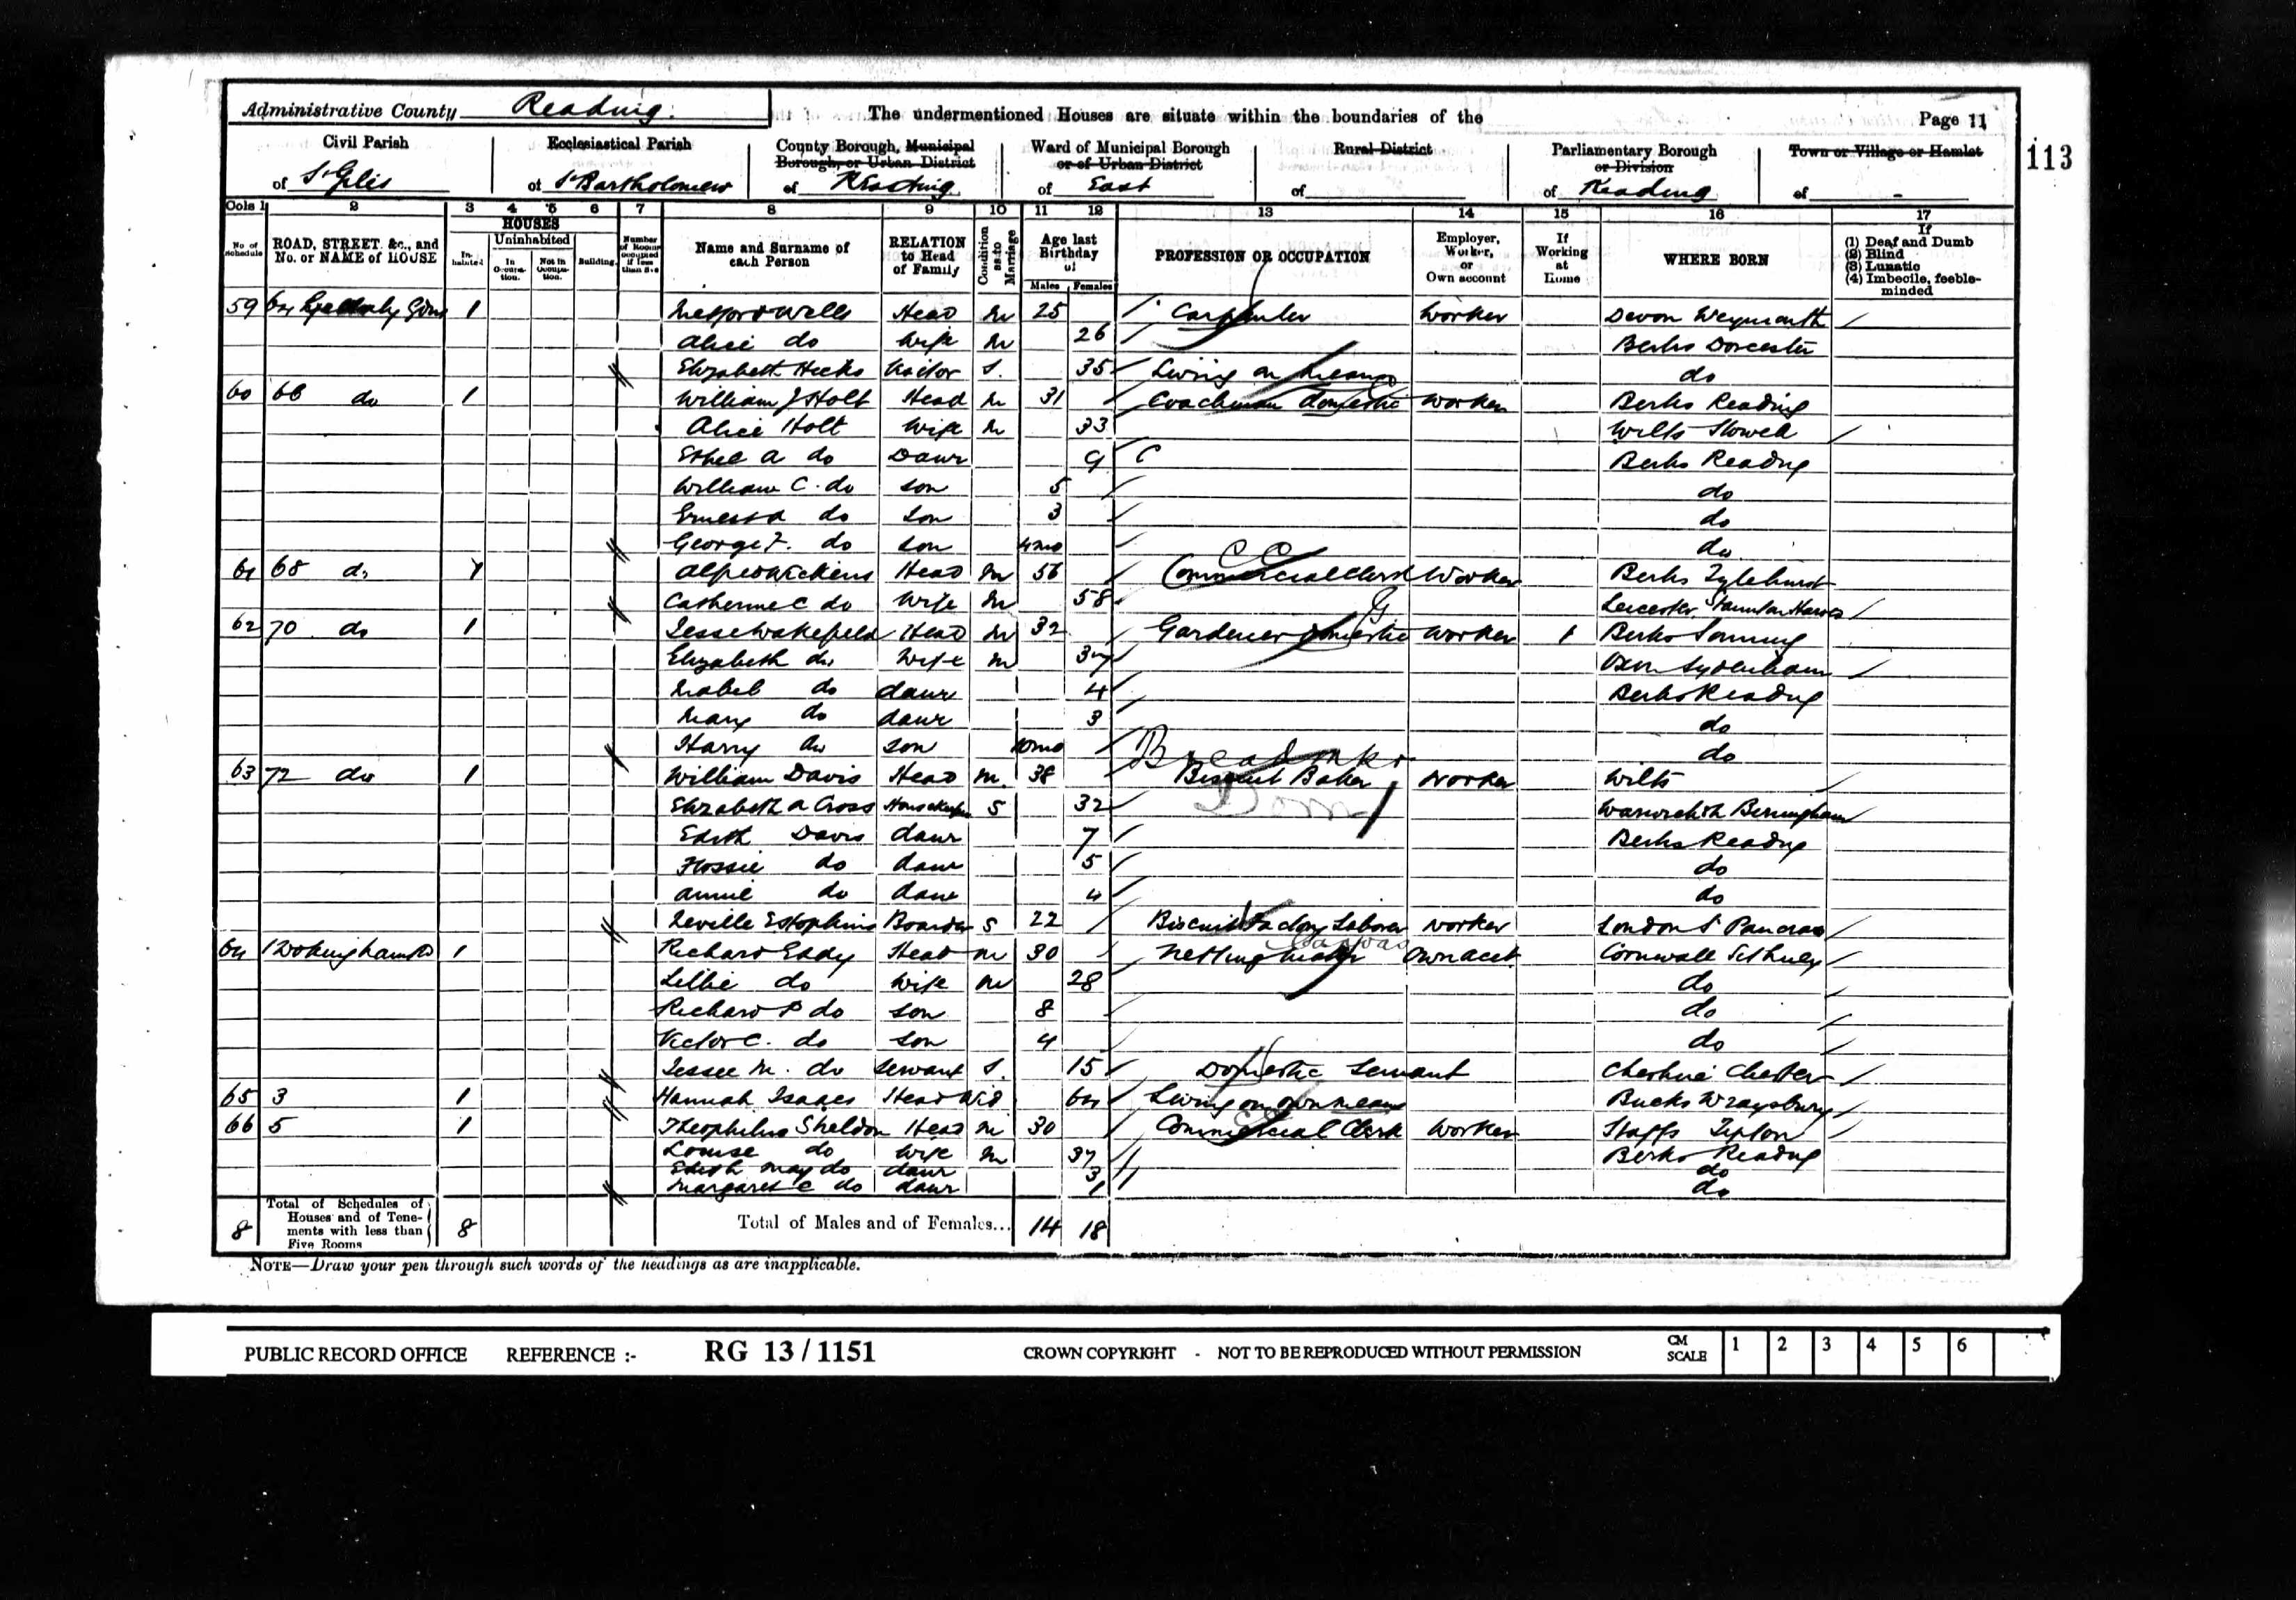 Administrative County Reading. The undermentioned Houses are situate within the boundaries of the Page 11
113
Civil Parish Ecclesiastical Parish County Borough, Municipal Borough, or Urban District Ward of Municipal Borough or of Urban District Rural District Parliamentary Borough or Division Town or Village or Hamlet
of St Giles of St Bartholomew of Reading of East of of Reading of -
Cols 1 2 3 4 5 6 7 8 9 10 11 12 13 14 15 16 17
No of Schedule ROAD, STREET, &c., and No. or NAME of HOUSE HOUSES Inhabited Uninhabited In Occupation. Not in Occupation. Building Number of Rooms occupied if less than five Name and Surname of each Person RELATION to Head of Family Condition as to Marriage Age last Birthday of Males Females PROFESSION OR OCCUPATION Employer, Worker, or Own account If Working at Home WHERE BORN If (1) Deaf and Dumb (2) Blind (3) Lunatic (4) Imbecile, feeble-minded
59 64 Gdns 1 Wells Head M 25 Carpenter Worker Devon Weymouth
Alice do Wife M 26 Berks Dorcester
Elizabeth Hicks Visitor S. 35 Living on means do
60 66 do 1 William J Holt Head M 31 Coachman domestic Worker Berks Reading
Alice Holt Wife M 33 Wilts Stowell
Ethel A do Daur 9 Berks Reading
William C. do Son 5 do
Ernest A do Son 3 do
George F. do Son 4mo do
61 68 do 1 Alfred Wickens Head M 56 Commercial Clerk Worker Berks Tylehurst
Catherine C do Wife M 58 Leicester Staunton Harold
62 70 do 1 Jesse Wakefield Head M 32 Gardener domestic Worker 1 Berks Sonning
Elizabeth do Wife M 37 Oxon Sydenham
Mabel do daur 4 Berks Reading
Mary do daur 3 do
Harry do son 10mo do
63 72 do 1 William Davis Head M. 38 Biscuit Baker Worker Wilts
Elizabeth A Cross Housekeeper S 32 Warwicksh Birmingham
Edith Davis daur 7 Berks Reading
Flossie do daur 5 do
Annie do daur 4 do
Neville E Hopkins Boarder S 22 Biscuit Factory Laborer Worker London St Pancras
64 1 Wokingham Rd 1 Richard Eddy Head M 30 Netting Maker Own acct Cornwall Sithney
Lillie do Wife M 28 do
Richard P do Son 8 do
Victor C. do Son 4 do
Jessie M. do Servant S. 15 Domestic Servant Cheshire Chester
65 3 1 Hannah Isaacs Head Wid 64 Living on own means Bucks Wraysbury
66 5 1 Theophilus Sheldon Head M 30 Commercial Clerk Worker Staffs Tipton
Louise do Wife M 37 Berks Reading
Edith May do daur 3 do
Margaret E do daur 1 do
8 Total of Schedules of Houses and of Tenements with less than Five Rooms 8 Total of Males and of Females... 14 18
NOTE—Draw your pen through such words of the headings as are inapplicable.
PUBLIC RECORD OFFICE REFERENCE :- RG 13 / 1151 CROWN COPYRIGHT - NOT TO BE REPRODUCED WITHOUT PERMISSION CM SCALE 1 2 3 4 5 6